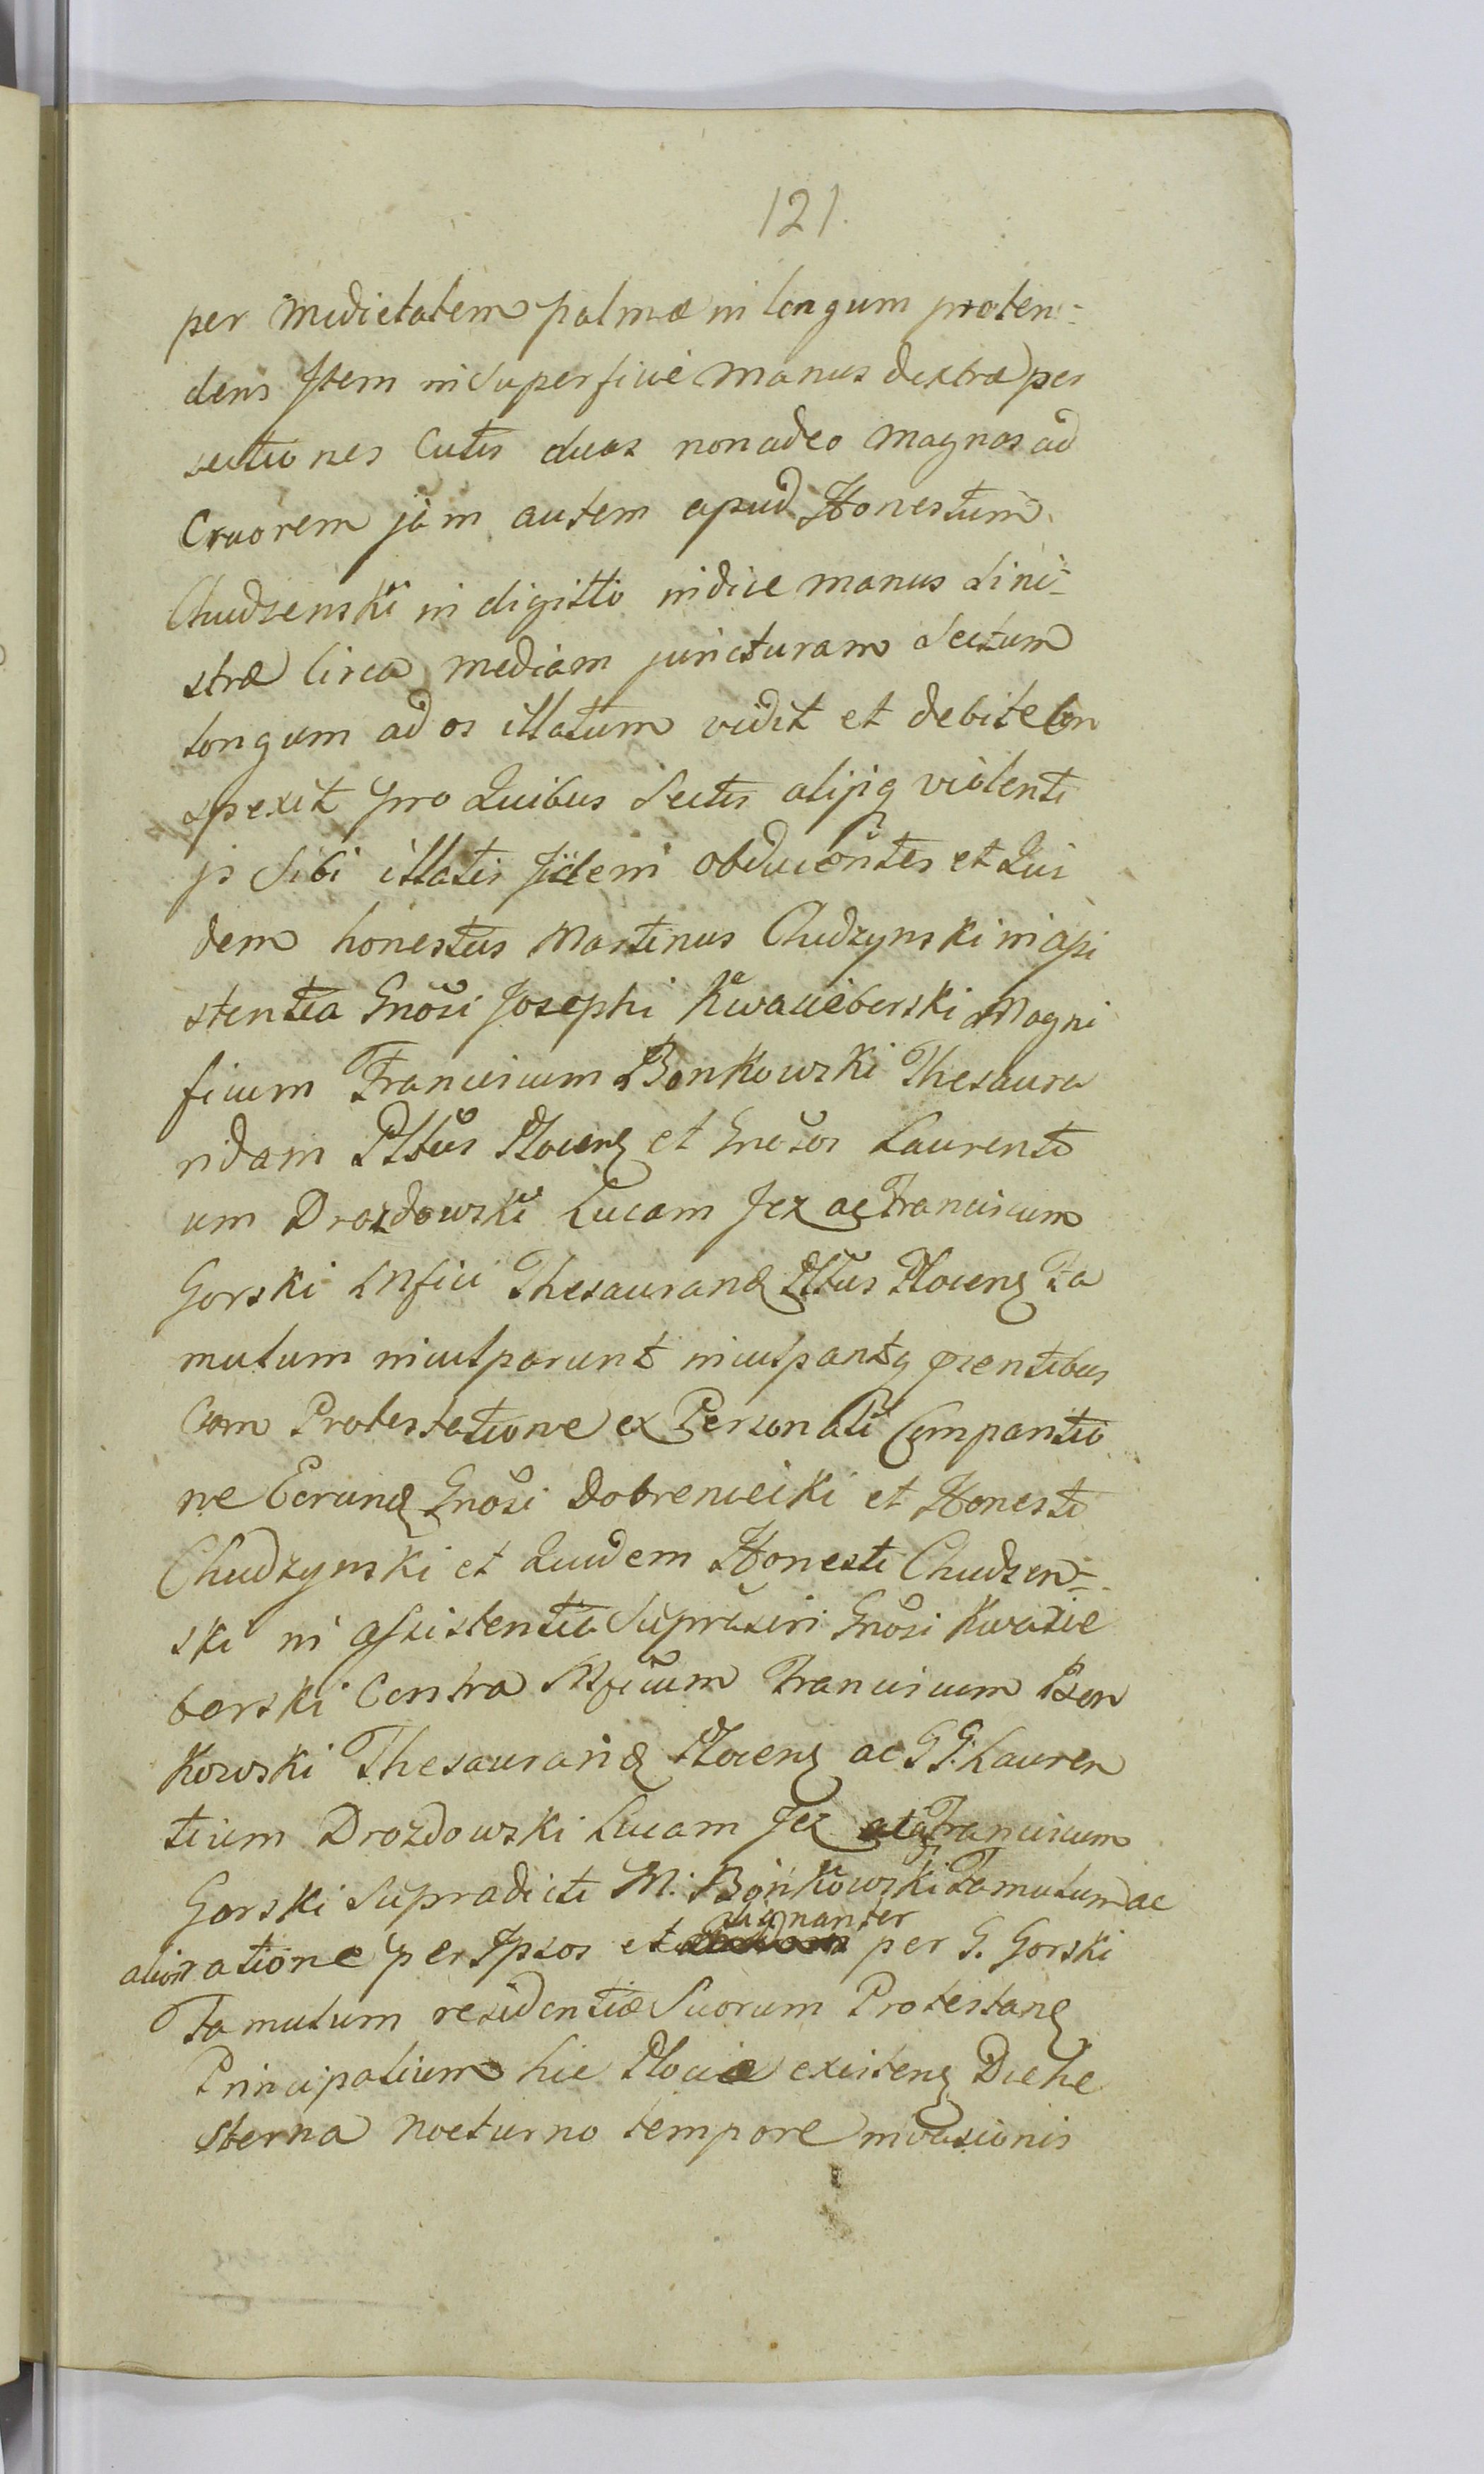 121.
per medietatem palmæ in longum proten-
dens Item in superficie manus dextræ per
sectiones Cutis duas non adeo magnas ad
Cruorem jam autem apud Honestum
Chudzenski in digitto indice manus Sini-
stræ Circa mediam juncturam Sectum
longum ad os illatum vidit et debite Con
spexit pro Quibus Sectis alijsq violenti
js Sibi illatis Jidem obducentes et Qui
dem honestus Martinus Chudzynski in assi
stentia Gnosi Josephi Kwacieborski Magni
ficum Franciscum Bonkowski Thesaura
ridam Plttus Plocens et Gnosos Laurenti
um Drozdowski Lucam Jez ac Franciscum
Gorski Mfici Thesaurarid Plttus Plocens Fa
mulum inculparunt inculpantq præntibus
Cum Protestatione ex Personali Comparitio
ne Eorund Gnosi Dobreniecki et Honesti
Chudzynski et Quidem Honesti Chudzen-
ski in assistentia Suprascri Gnosi Kwacie
borski Contra Mficum Franciscum Bon
kowski Thesaurarid Plocens ac GG. Lauren
tium Drozdowski Lucam Jez atq Franciscum
Gorski Supradicti M. Bonkowski Famulum ac
alios ratione per Ipsos et signanter per G. Gorski
Famulum residentiæ Suorum Protestans
Principalium hic Plociæ existens Die he
sterna nocturno tempore invasionis